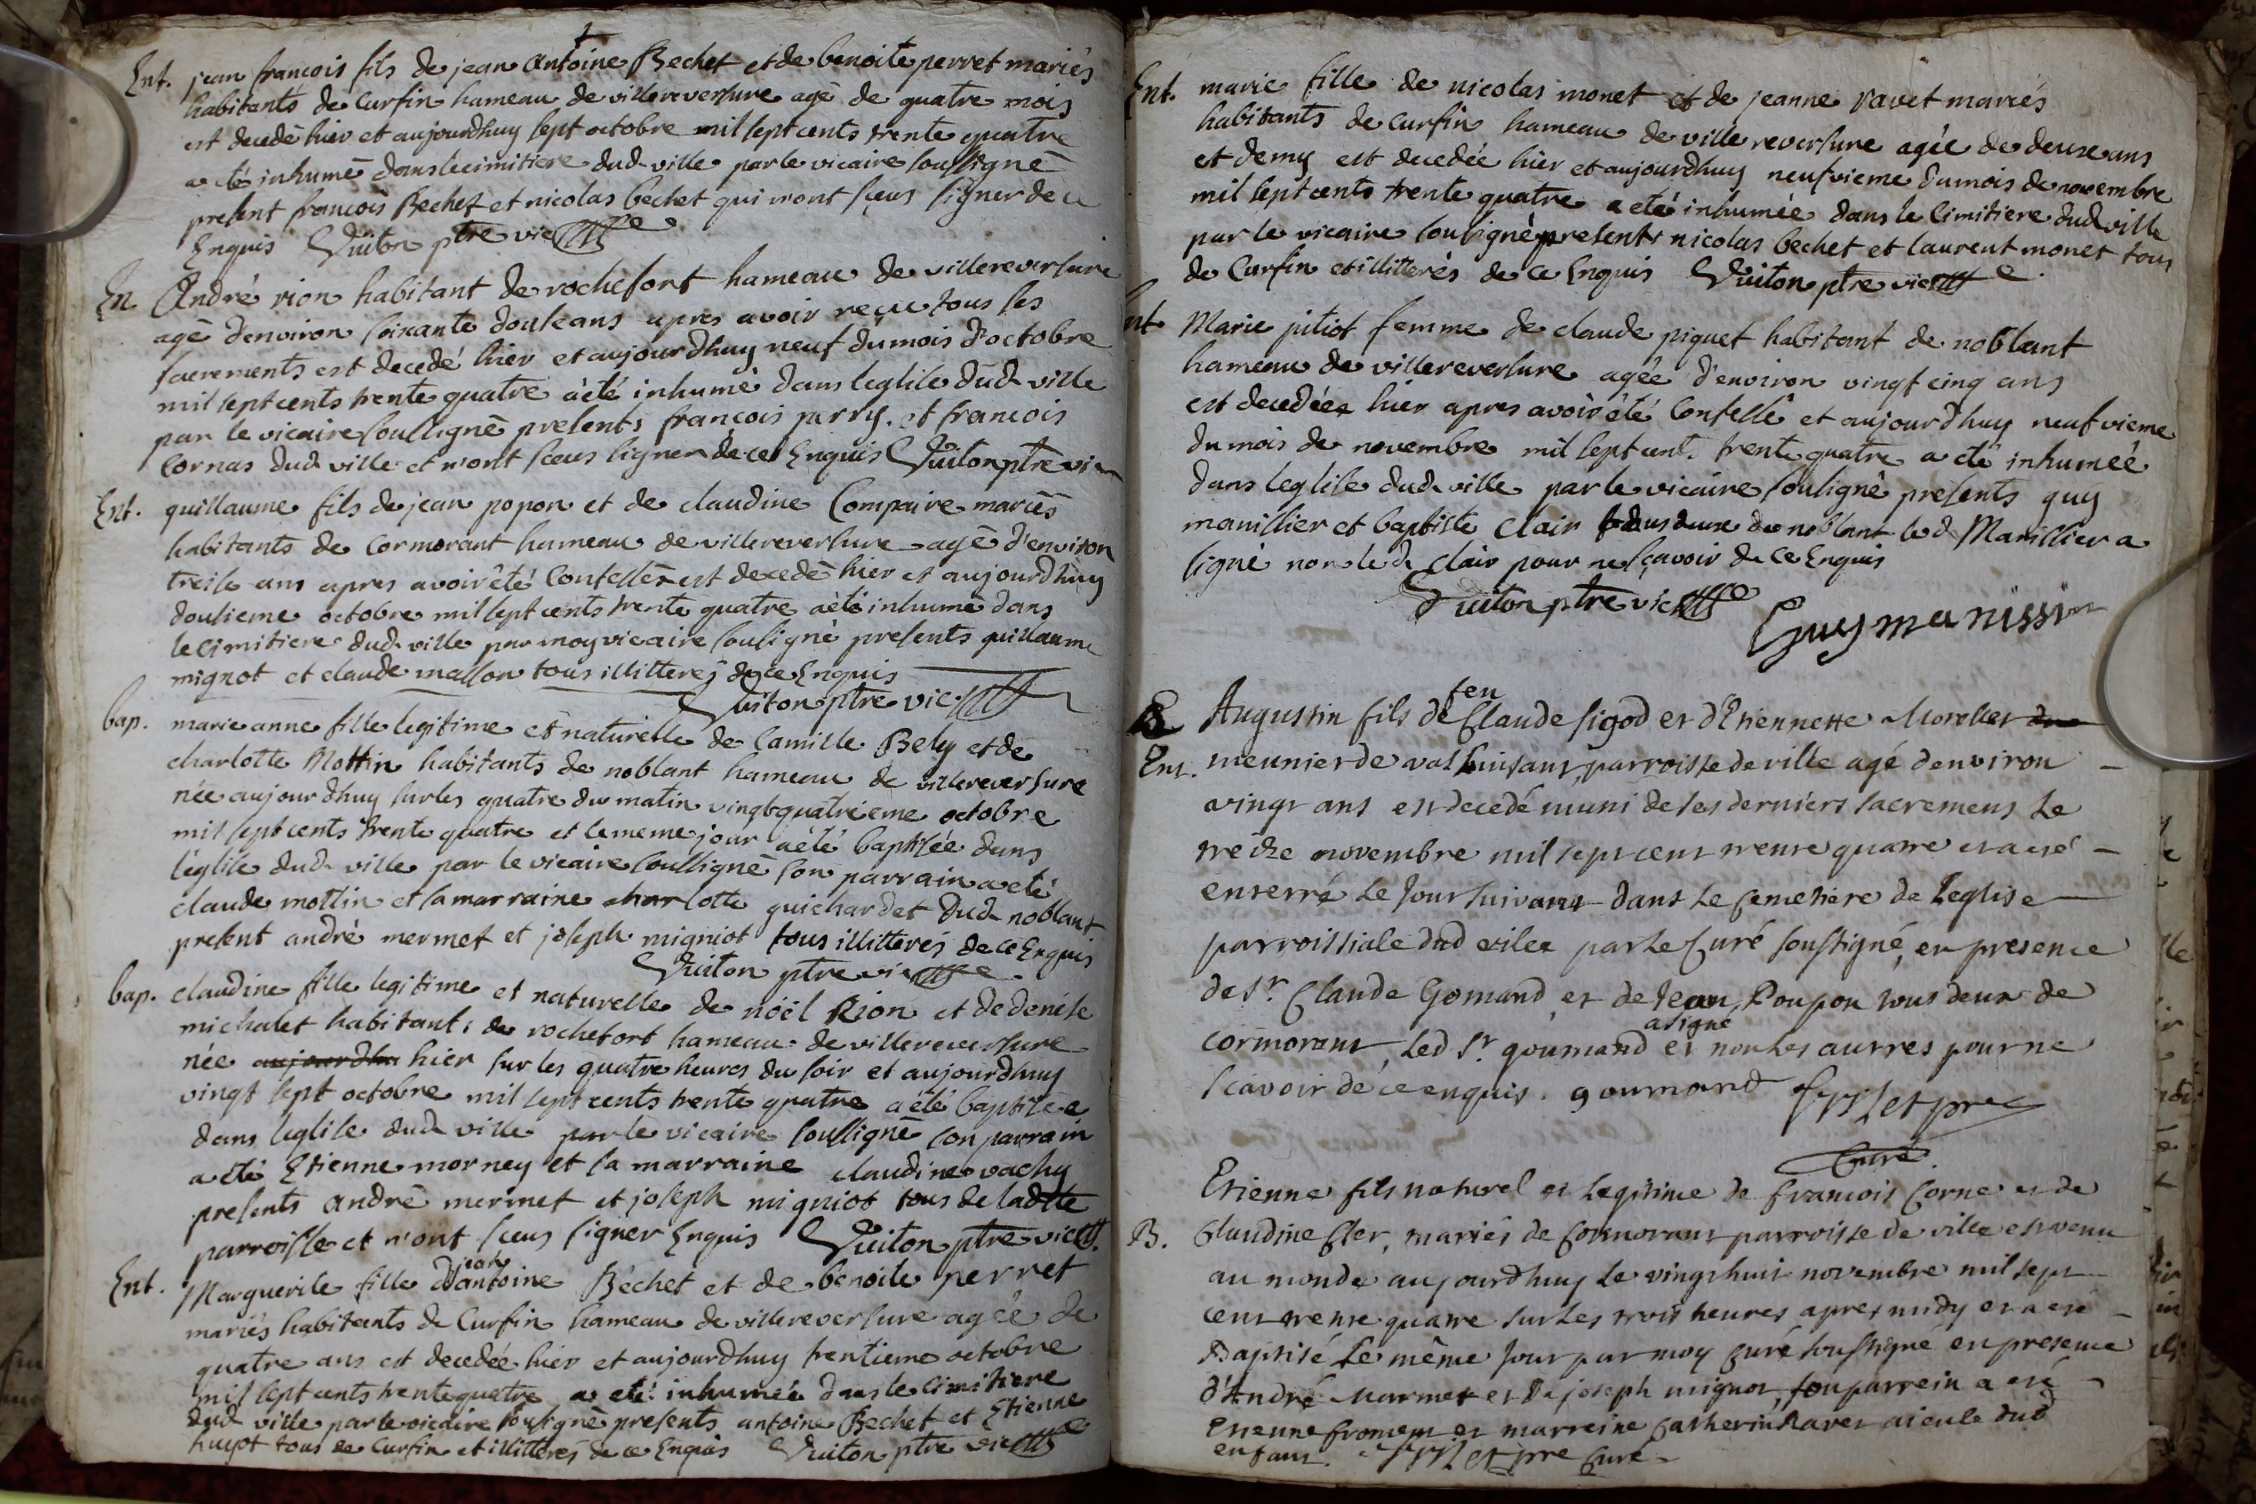 Ent. jean francois fils de jean Antoine Bechet et de benoite perret mariés
habitants de Curfin hameau de villereversure agé de quatre mois
est decedé hier et aujourdhuy sept octobre mil sept cents trente quatre
a eté inhumé dans le cimitiere dud ville par le vicaire soussigné
present francois Bechet et nicolas bechet qui n'ont sceus signer de ce
Enquis Vuiton ptre vic
En. André rion habitant de rochefort hameau de villereversure
agé d'environ soixante douse ans apres avoir reçeu tous les
sacrements est decedé hier et aujourdhuy neuf du mois d'octobre
mil sept cents trente quatre a été inhumé dans leglise dud ville
par le vicaire soussigné presents françois et francois
Cornas dud ville et n'ont sceus signer de ce Enquis Vuiton ptre vic
Ent. guillaume fils de jean popon et de claudine Compaire mariés
habitants de Cormorant hameau de villereversure agé d'environ
treise ans apres avoir été Confessé est decedé hier et aujourdhuy
dousieme octobre mil sept cents trente quatre a été inhumé dans
le cimitiere dud ville par moy vicaire sousigné presents guillaume
mignot et claude masson tous illitterés de ce Enquis
Vuiton ptre vic
bap. marie anne fille legitime et naturelle de Camille Bely et de
charlotte Mottin habitants de noblant hameau de villereversure
née aujourdhuy sur les quatre du matin vingt quatrieme octobre
mil sept cents trente quatre et le meme jour a été baptisée dans
l'église dud ville par le vicaire soussigné son parrain a eté
claude mottin et sa marraine charlotte guichardet dud noblant
present andré mermet et joseph migniot tous illitterés de ce Enquis
Vuiton ptre vic
bap. claudine fille legitime et naturelle de noël Rion et de denise
michalet habitants de rochefort hameau de villereversure
née aujourdhu hier sur les quatre heures du soir et aujourdhuy
vingt sept octobre mil sept cents trente quatre a été baptisée
dans leglise dud ville par le vicaire soussigné son parrain
a eté Etienne morney et sa marraine claudine vachy
presents andré mermet et joseph migniot tous de ladtte
parroisse et n'ont sceus signer Enquis Vuiton ptre vic
jean
Ent. Marguerite fille d'antoine Béchet et de benoite perret
mariés habitants de Curfin hameau de villereversure agée de
quatre ans est decedée hier et aujourdhuy trentieme octobre
mil sept cents trente quatre a eté inhumée dans le cimitiere
dud ville par le vicaire sousigné presents antoine Bechet et Etienne
tous de Curfin et illitterés de ce Enquis Vuiton ptre vic
Ent. marie fille de nicolas monet et de jeanne ravet mariés
habitants de Curfin hameau de ville reversure agée de deux ans
et demy est decedée hier et aujourdhuy neufvieme du mois de novembre
mil sept cents trente quatre a eté inhumée dans le Cimitiere dud ville
par le vicaire sousigné presents nicolas bechet et laurent monet tous
de Curfin et illitterés de ce Enquis Vuiton ptre vic
Ent Marie pitiot femme de claude piquet habitant de noblant
hameau de villereversure agée d'environ vingt cinq ans
est decedée hier apres avoir été Confessé et aujourdhuy neufvieme
du mois de novembre mil sept cent trente quatre a eté inhumée
dans leglise dud ville par le vicaire sousigné presents guy
manillier et baptiste Clair tous deux de noblant led Manillier a
signé non led clair pour ne sçavoir de ce Enquis
Vuiton ptre vic
Guy manissi
feu
Augustin fils de Claude sigod et d'Etiennette Morellet du
Ent. meunier de valsuisant, parroisse de ville agé d'environ
vingt ans est decedé muni de ses derniers sacremens le
treize novembre mil sept cent trente quatre et a eté
enterré le jour suivant dans le cemetiere de l'eglise
parroissiale dud ville par le Curé soussigné, en presence
de sr. Claude Gomand, et de Jean Poupon tous deux de
a signé
cormorant, led sr. goumand et non les autres pour ne
scavoir de ce enquis. goumand
Curé
Etienne fils naturel et legitime de francois Corne et de
B. Claudine Cler, mariés de Cormorant parroisse de ville est venu
au monde aujourdhuy le vingt huit novembre mil sept
cent trente quatre sur les trois heures apres midy et a eté
Baptisé le même jour par moy curé soussigné en presence
d'André Marmet et de joseph mignot, son parrein a eté
Etienne froment et marreine Catherin Ravet aieule dud
enfant. ptre Curé